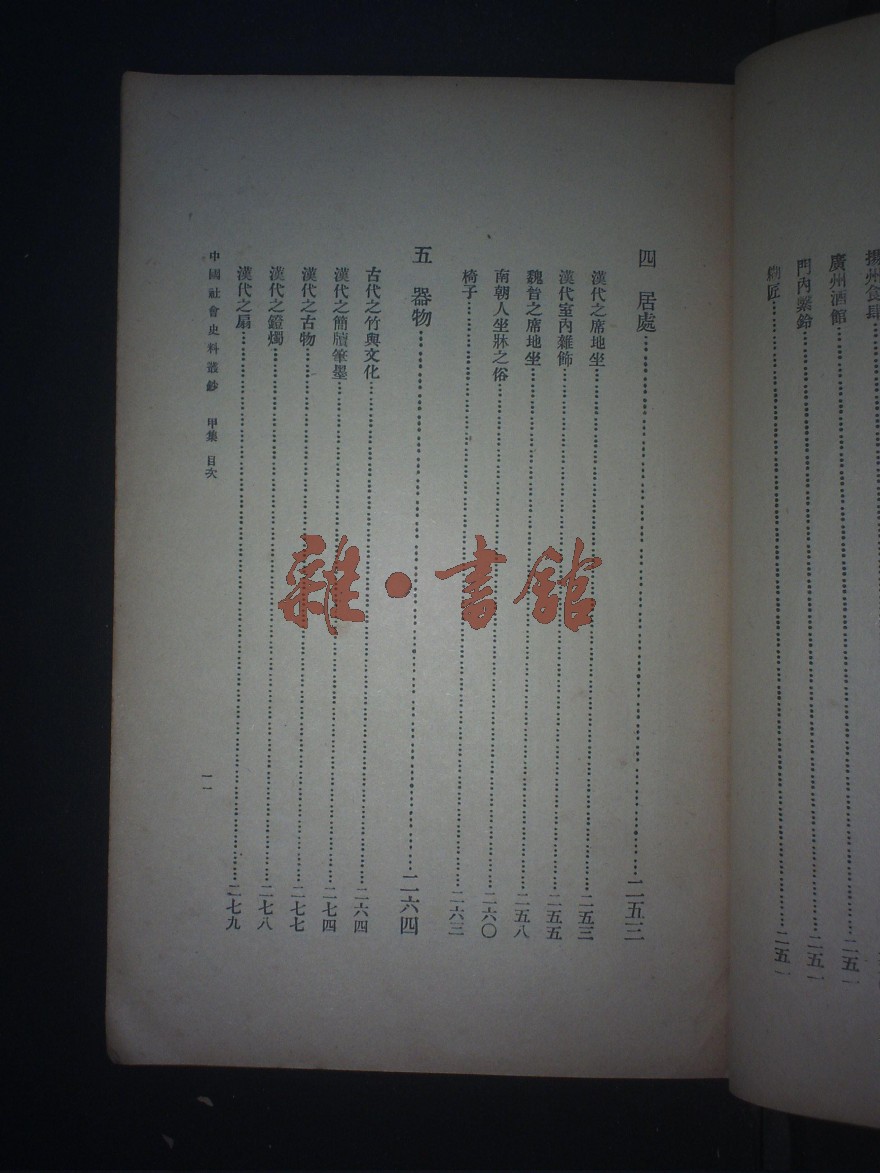 揚州食肆
廣州酒館……二五一
門內藥鈴……二五一
匠……二五一
四 居處……二五三
漢代之席地坐……二五三
漢代室內雜飾……二五五
魏晉之席地坐……二五八
南朝人坐牀之俗……二六〇
椅子……二六三
五 器物……二六四
古代之竹與文化……二六四
漢代之簡牘筆墨……二七四
漢代之古物……二七七
漢代之鐙燭……二七八
漢代之扇……二七九
中國社會史料叢鈔 甲集 目次
一一
雜·書館